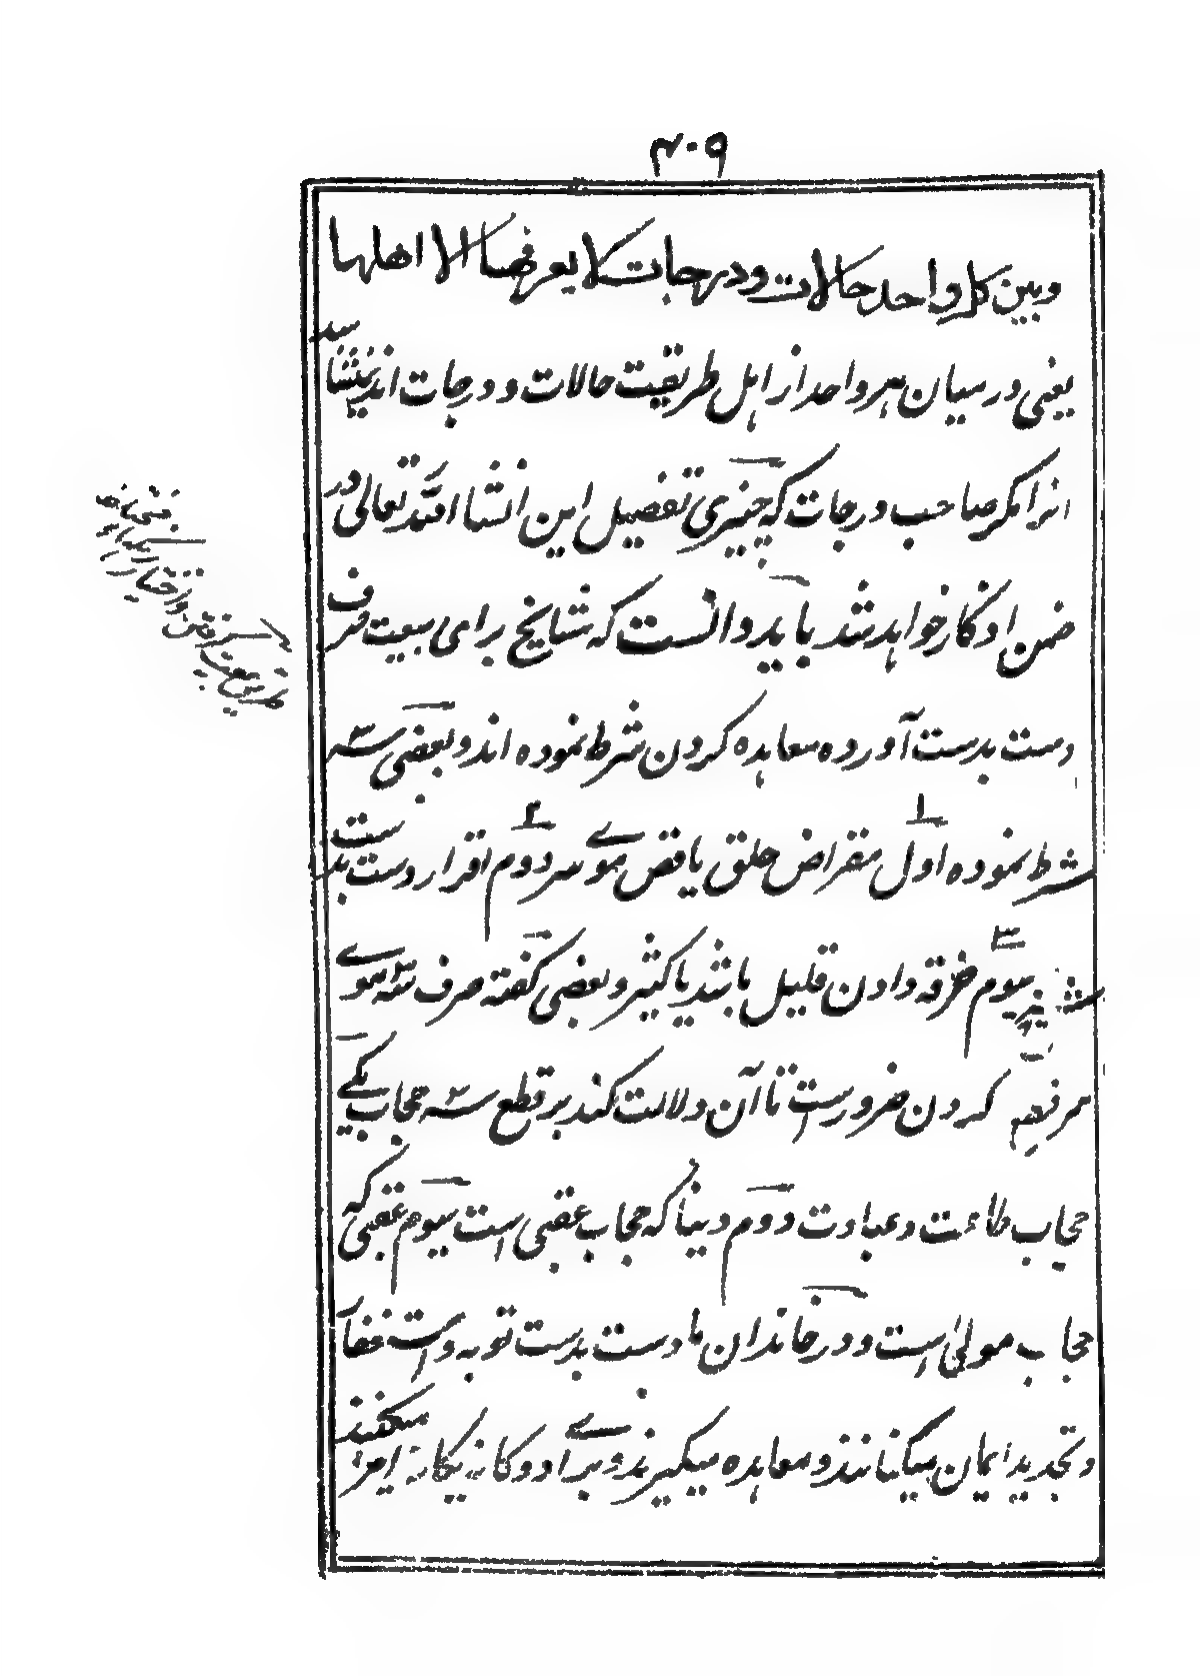 ۴۰۹
وبین کل واحد حالات ودرجات لا یعرفها الا اهلها
یعنی درمیان هر واحد از اهل طریقت حالات و درجات اند نمیشناسد
انرا مگر صاحب درجات که چیزی تفصیل این انشا الله تعالی در
ضمن اذکار خواهد شد باید دانست که مشایخ برای بیعت صرف
دست بدست آورده معاهده کردن شرط نموده اند و بعضی سه
شرط نموده اول مقراض حلق یا قص موے سر دوم اقرار دست بدست
سیوم خرقه دادن قلیل باشد یا کثیر و بعضی گفته صرف سه موے
کردن ضرورست تا آن دلالت کند بر قطع سه حجاب یکے
حجاب طاعت و عبادت دوم دنیا که حجاب عقبی است سیوم عقبی که
حجاب مولی است و در خاندان ما دست بدست توبه و استغفار
و تجدید ایمان میکنانند و معاهده میگیرند و براے دوگانه یگانه امر میکنند